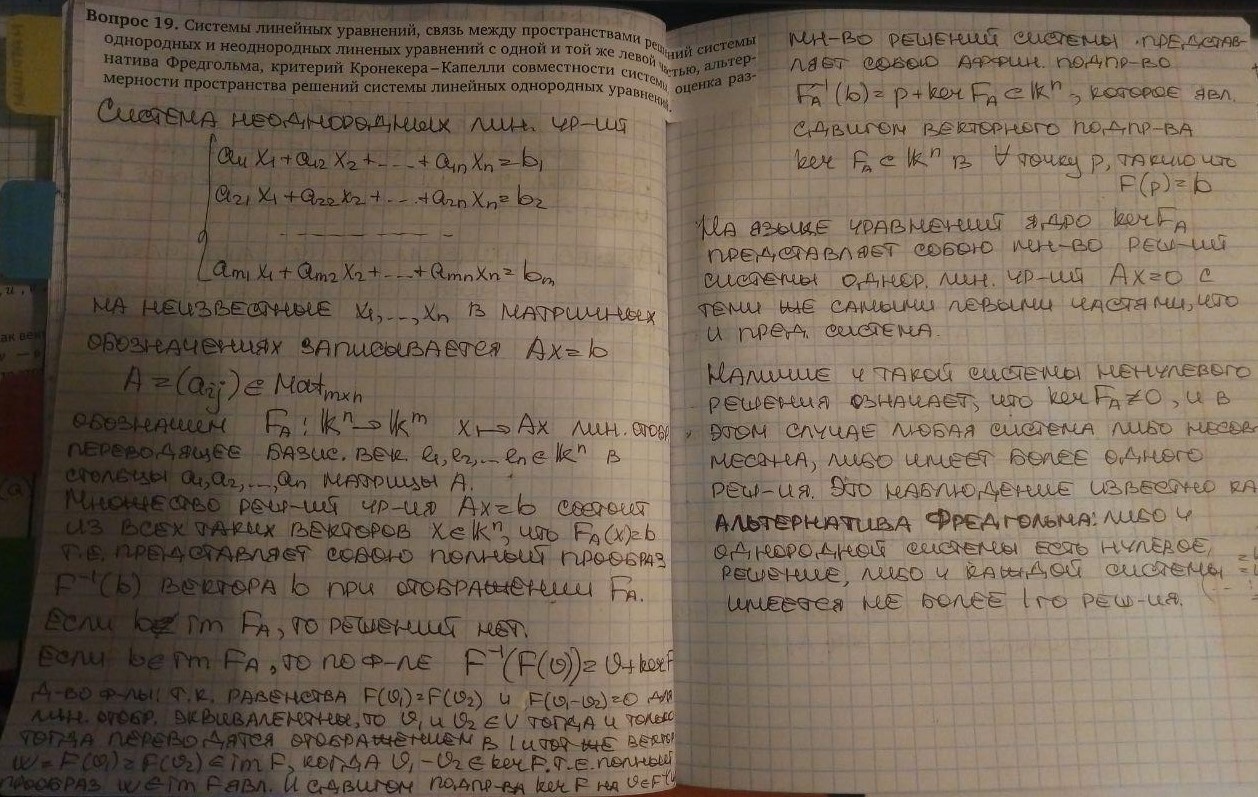 Вопрос 19. Системы линейных уравнений, связь между пространствами решений системы
однородных и неоднородных линеных уравнений с одной и той же левой частью, альтер-
натива Фредгольма, критерий Кронекера–Капелли совместности системы, оценка раз-
мерности пространства решений системы линейных однородных уравнений.
СИСТЕМА НЕОДНОРОДНЫХ ЛИН. УР-ИЙ
a₁₁x₁+a₁₂x₂+...+a₁ₙxₙ=b₁
a₂₁x₁+a₂₂x₂+...+a₂ₙxₙ=b₂
- - - - - - - - -
aₘ₁x₁+aₘ₂x₂+...+aₘₙxₙ=bₘ
НА НЕИЗВЕСТНЫЕ x₁,...,xₙ В МАТРИЧНЫХ
ОБОЗНАЧЕНИЯХ ЗАПИСЫВАЕТСЯ Ax=b
A=(aᵢⱼ)∈Matₘₓₙ
ОБОЗНАЧИМ F_A: 𝕜ⁿ→𝕜ᵐ x↦Ax ЛИН. ОТОБР
ПЕРЕВОДЯЩЕЕ БАЗИС. ВЕК. e₁,e₂,...eₙ∈𝕜ⁿ В
СТОЛБЦЫ a₁,a₂,...,aₙ МАТРИЦЫ A.
МНОЖЕСТВО РЕШ-ИЙ УР-ИЯ Ax=b СОСТОИТ
ИЗ ВСЕХ ТАКИХ ВЕКТОРОВ x∈𝕜ⁿ, ЧТО F_A(x)=b
Т.Е. ПРЕДСТАВЛЯЕТ СОБОЮ ПОЛНЫЙ ПРООБРАЗ
F⁻¹(b) ВЕКТОРА b ПРИ ОТОБРАЖЕНИИ F_A.
ЕСЛИ b∉im F_A, ТО РЕШЕНИЙ НЕТ.
ЕСЛИ b∈im F_A, ТО ПО Ф-ЛЕ F⁻¹(F(v))=v+ker F
Д-ВО Ф-ЛЫ: Т.К. РАВЕНСТВА F(v₁)=F(v₂) И F(v₁-v₂)=0 ДЛЯ
ЛИН. ОТОБР. ЭКВИВАЛЕНТНЫ, ТО v₁ И v₂∈V ТОГДА И ТОЛЬКО
ТОГДА ПЕРЕВОДЯТСЯ ОТОБРАЖЕНИЕМ В 1 И ТОТ ЖЕ ВЕКТОР
w=F(v₁)=F(v₂)∈im F, КОГДА v₁-v₂∈ker F. Т.Е. ПОЛНЫЙ
ПРООБРАЗ w∈im F ЯВЛ. И СДВИГОМ ПОДПР-ВА ker F НА v∈F⁻¹(w
МН-ВО РЕШЕНИЙ СИСТЕМЫ ПРЕДСТАВ-
ЛЯЕТ СОБОЮ АФФИН. ПОДПР-ВО
F_A⁻¹(b)=p+ker F_A⊂𝕜ⁿ, КОТОРОЕ ЯВЛ.
СДВИГОМ ВЕКТОРНОГО ПОДПР-ВА
ker F_A⊂𝕜ⁿ В ∀ ТОЧКУ p, ТАКУЮ ЧТО
F(p)=b
НА ЯЗЫКЕ УРАВНЕНИЙ ЯДРО ker F_A
ПРЕДСТАВЛЯЕТ СОБОЮ МН-ВО РЕШ-ИЙ
СИСТЕМЫ ОДНОР. ЛИН. УР-ИЙ Ax=0 С
ТЕМИ ЖЕ САМЫМИ ЛЕВЫМИ ЧАСТЯМИ, ЧТО
И ПРЕД. СИСТЕМА.
НАЛИЧИЕ У ТАКОЙ СИСТЕМЫ НЕНУЛЕВОГО
РЕШЕНИЯ ОЗНАЧАЕТ, ЧТО ker F_A≠0, И В
ЭТОМ СЛУЧАЕ ЛЮБАЯ СИСТЕМА ЛИБО НЕСОВ
МЕСТНА, ЛИБО ИМЕЕТ БОЛЕЕ ОДНОГО
РЕШ-ИЯ. ЭТО НАБЛЮДЕНИЕ ИЗВЕСТНО КА
АЛЬТЕРНАТИВА ФРЕДГОЛЬМА: ЛИБО У
ОДНОРОДНОЙ СИСТЕМЫ ЕСТЬ НУЛЕВОЕ
РЕШЕНИЕ, ЛИБО У КАЖДОЙ СИСТЕМЫ
ИМЕЕТСЯ НЕ БОЛЕЕ 1ГО РЕШ-ИЯ.